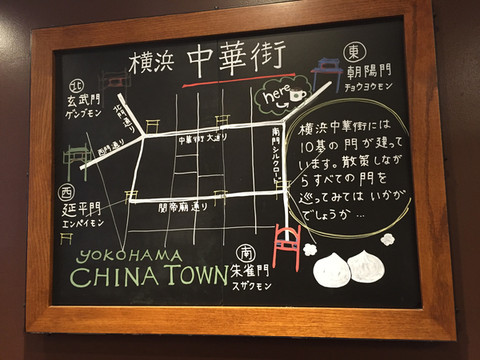 横浜 中華街
北
玄武門
ゲンブモン
東
朝陽門
チョウヨウモン
here
北門通り
西門通り
中華街大通り
南門シルクロード
関帝廟通り
西
延平門
エンペイモン
南
朱雀門
スザクモン
横浜中華街には
10基の門が建って
います。散策しなが
らすべての門を
巡ってみては いかが
でしょうか…
YOKOHAMA
CHINA TOWN